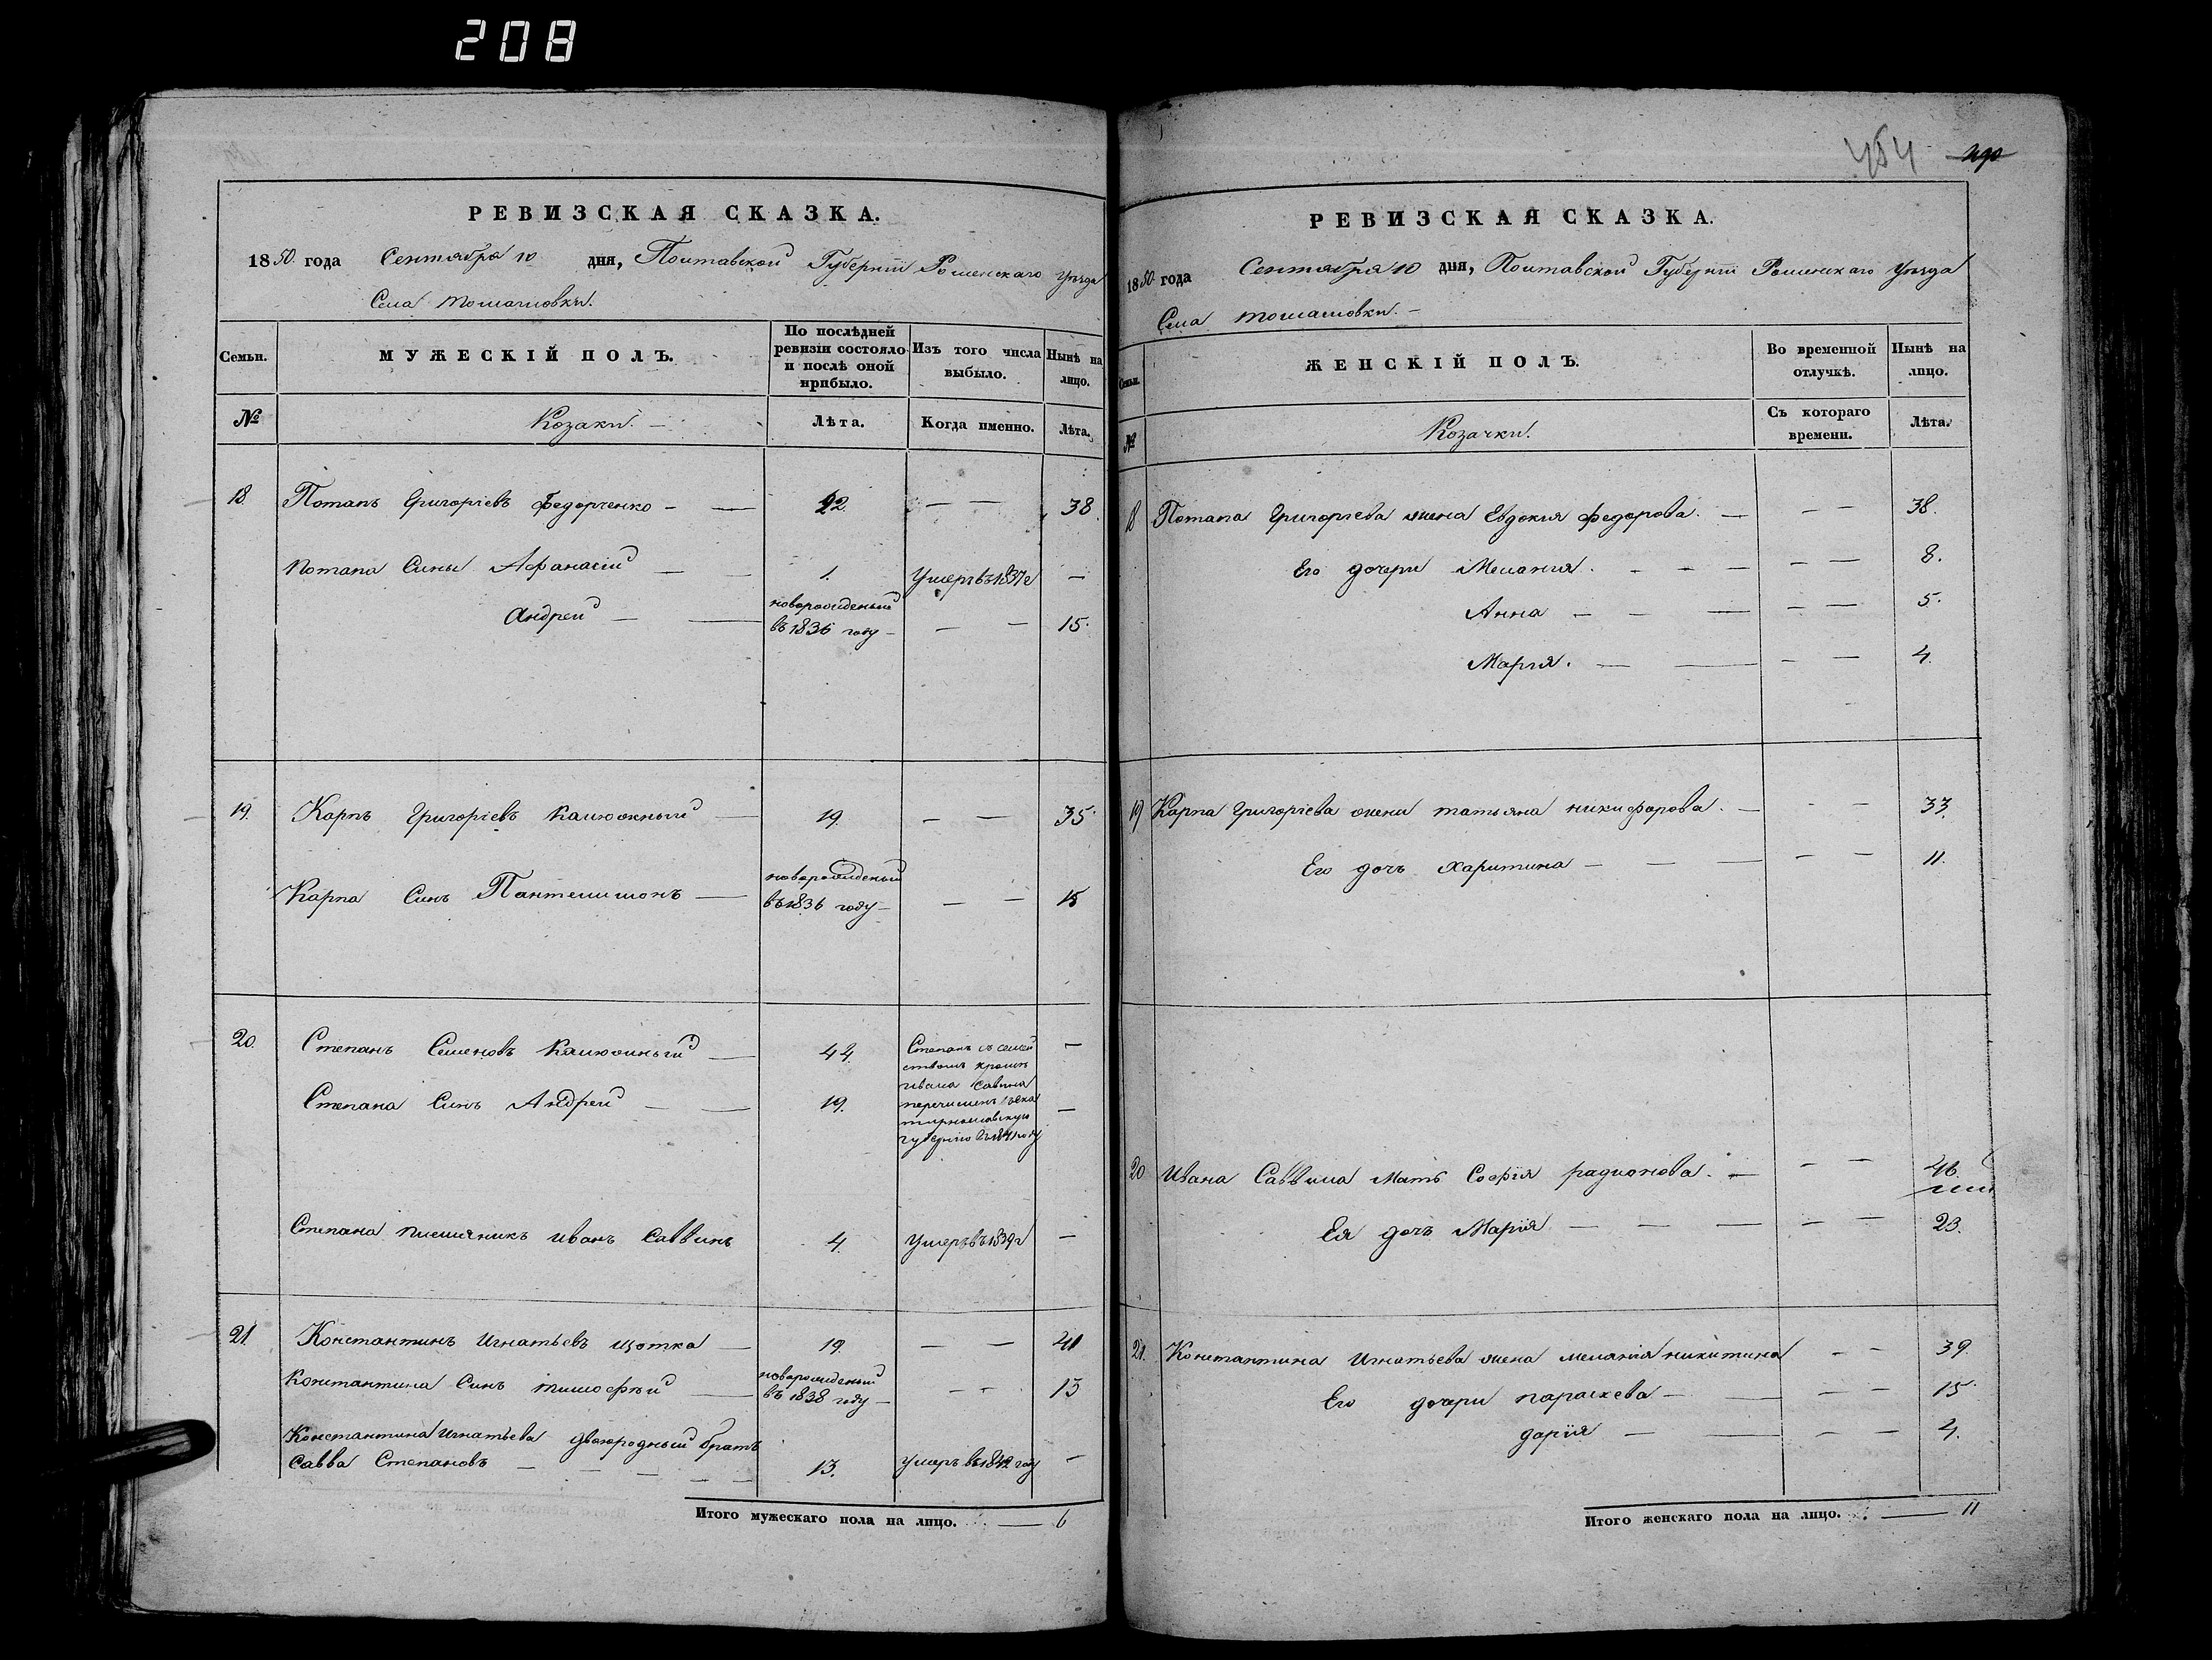 208
454 490
РЕВИЗСКАЯ СКАЗКА.
1850 года Сентября 10 дня, Полтавской Губерніи Роменскаго уѣзда
Села Томашовки.
Семьи.
МУЖЕСКІЙ ПОЛЪ.
По послѣдней ревизіи состояло и послѣ оной прибыло.
Изъ того числа выбыло.
Нынѣ на лицо.
№
Козаки. —
Лѣта.
Когда именно.
Лѣта.
18. Потапъ Григоріевъ Федорченко — — 22. — — 38.
Потапа Сины Афанасій — — 1. Умеръ въ 1837 г —
Андрей — — новорожденый въ 1836 году — — — 15.
19. Карпъ Григоріевъ Калюжный — 19. — — 35.
Карпа Синъ Пантелимонъ — новорожденый въ 1836 году — — — 15
20. Степанъ Семеновъ Калюжный — 44. Степанъ съ семей —
ствомъ кромѣ
ивана Савина
Степана Синъ Андрей — — 19. перечисленъ въ ека —
теринославскую
губернію въ 1841 году
Степана племяникъ иванъ Саввинъ 4. Умеръ въ 1839 г —
21. Константинъ Игнатьевъ щотка — 19. — — 41
Константина Синъ тимофѣй — новорожденый въ 1838 году — — — 13
Константина Игнатьева двоюродный братъ
Савва Степановъ — — — — — 13. умеръ въ 1842 году —
Итого мужескаго пола на лицо. — 6
РЕВИЗСКАЯ СКАЗКА.
1850 года Сентября 10 дня, Полтавской Губерніи Роменскаго уѣзда
Села томашовки. —
Семьи.
ЖЕНСКІЙ ПОЛЪ.
Во временной отлучкѣ.
Нынѣ на лицо.
№
Козачки.
Съ котораго времени.
Лѣта.
18 Потапа Григоріева жена Евдокия федорова. — — — 38.
Его дочери Мелания. — — — — — 8.
Анна — — — — — 5.
Мария. — — — — 4.
19 Карпа Григоріева жена татьяна никифорова. — — — 33.
Его дочь харитина — — — — — 11.
20 Ивана Саввина Мать Софія радионова. — — — 46.
Ея дочь Марія — — — — — 23.
21. Константина Игнатьева жена меланія никитина — — 39.
Его дочери параскева — — — — 15.
дарія — — — — 4.
Итого женскаго пола на лицо. — 11